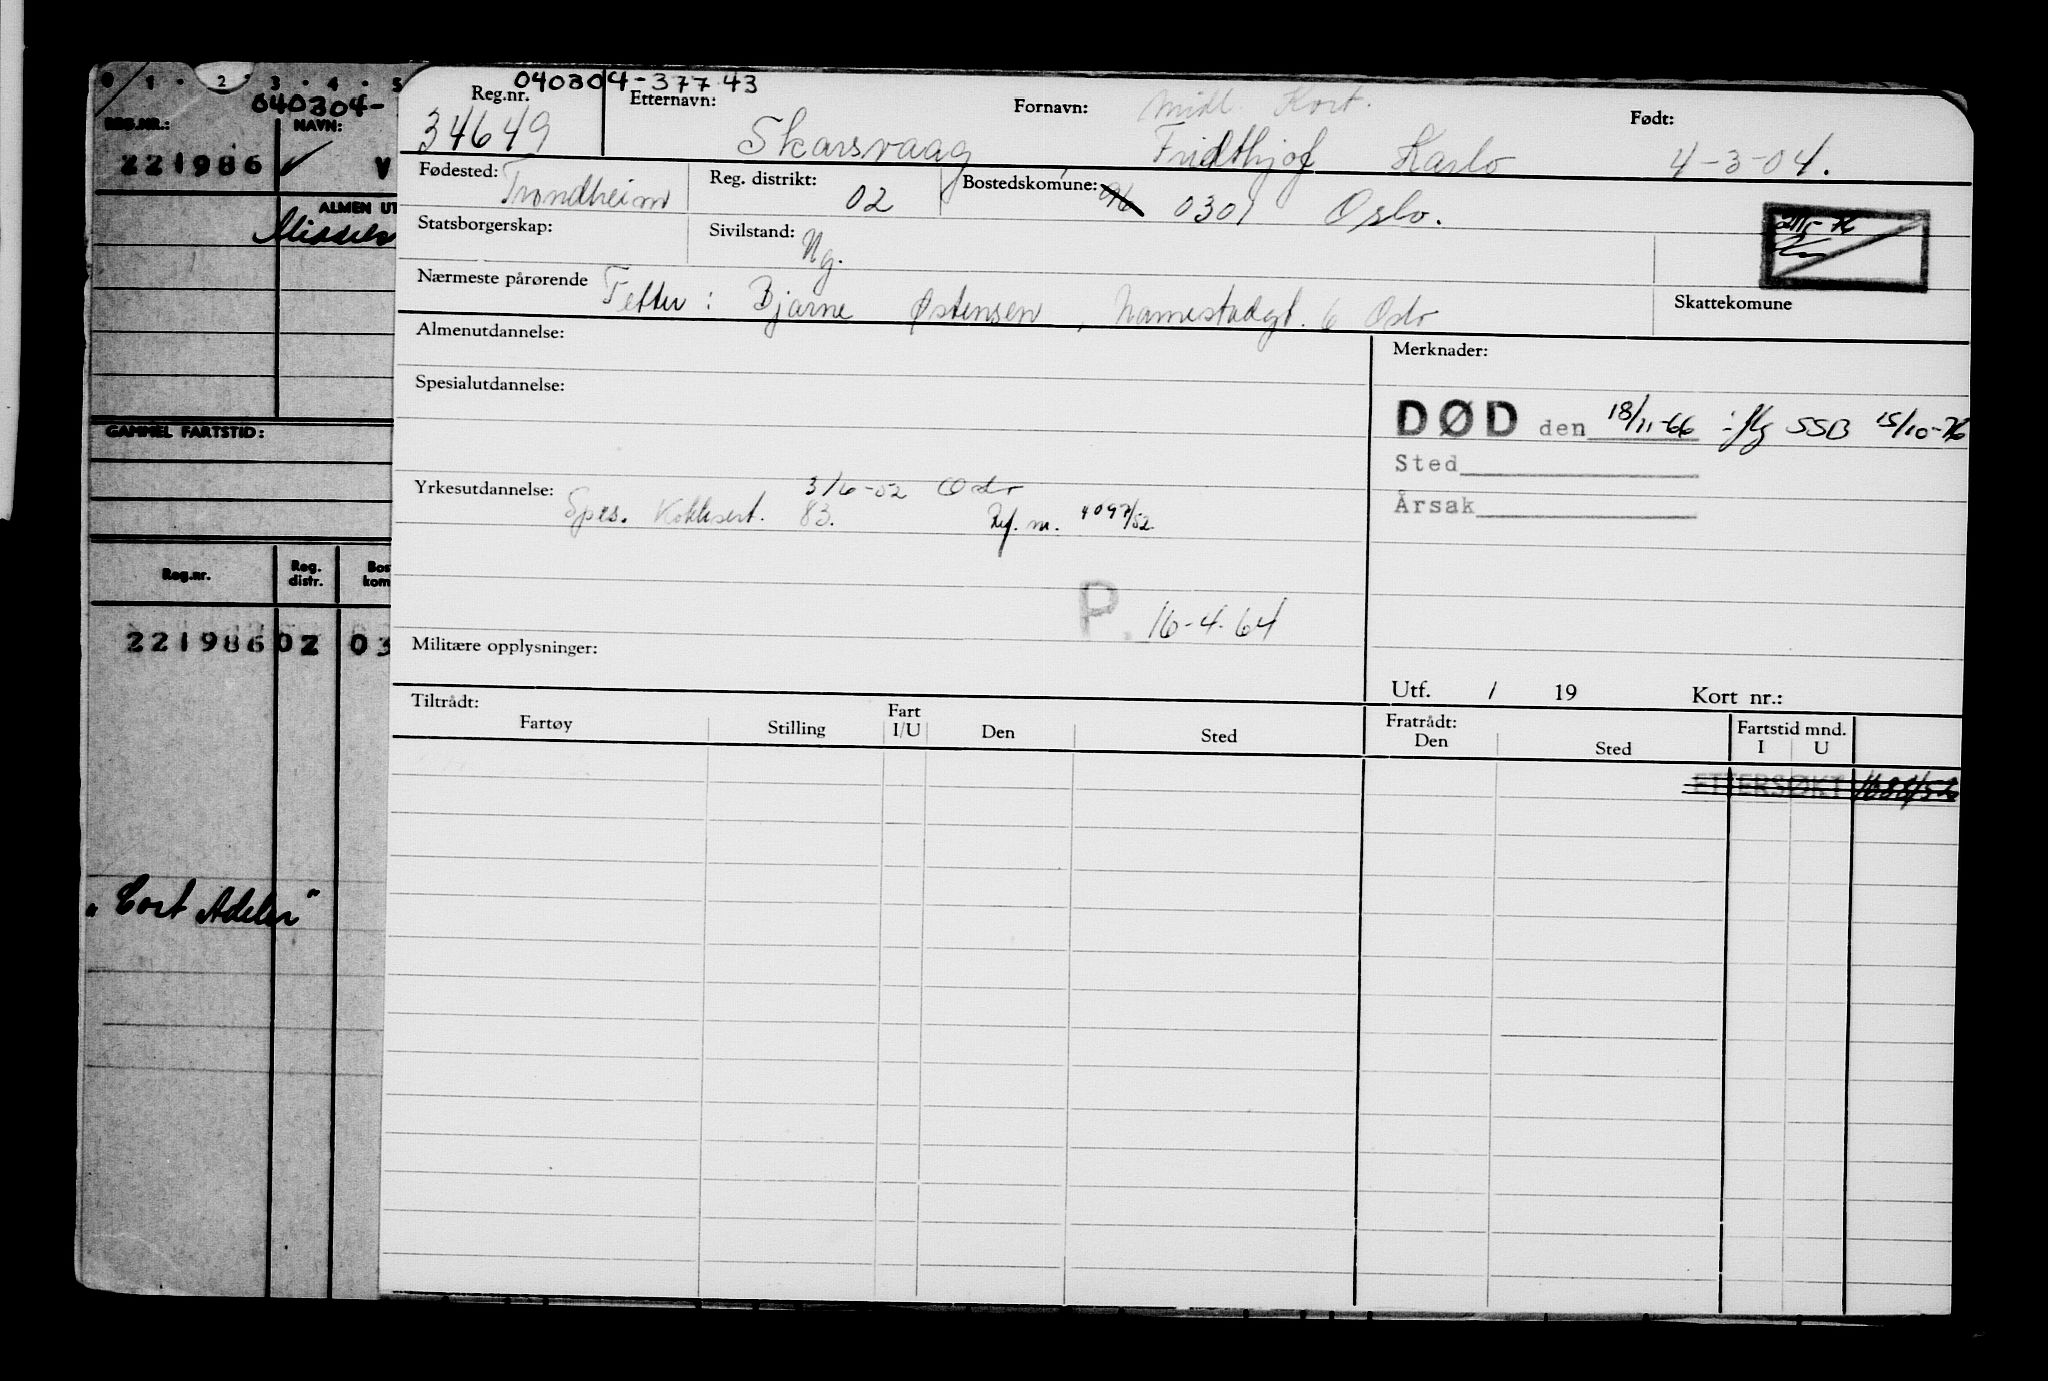 0 1 · 2 · 3 · 4 · 5
040304-
REG.NR.: NAVN:
221986 ✓ V
ALMEN UT
Middels
GAMMEL FARTSTID:
Reg.nr. Reg. distr. Bos kom
221986 02 03
"Cort Adeler"
040304-37743
Reg.nr. Etternavn: Fornavn: Midl. Kort. Født:
34649 Skarsvaag Fridthjof Karlo 4-3-04.
Fødested: Trondheim Reg. distrikt: 02 Bostedskomune: 0301 Oslo.
Statsborgerskap: Sivilstand: Ug.
Nærmeste pårørende Fetter: Bjarne Østensen, 6 Oslo
Skattekomune
Almenutdannelse:
Merknader:
Spesialutdannelse:
DØD den 18/11-66 iflg SSB 15/10-76
Sted
Årsak
Yrkesutdannelse: 3/6-52 Oslo
Spes. Kokksert. 83. Ref. nr. 4097/52
P. 16-4-64
Militære opplysninger:
Utf. / 19 Kort nr.:
Tiltrådt: Fratrådt:
Fartøy Stilling Fart I/U Den Sted Den Sted Fartstid mnd. I U
ETTERSØKT